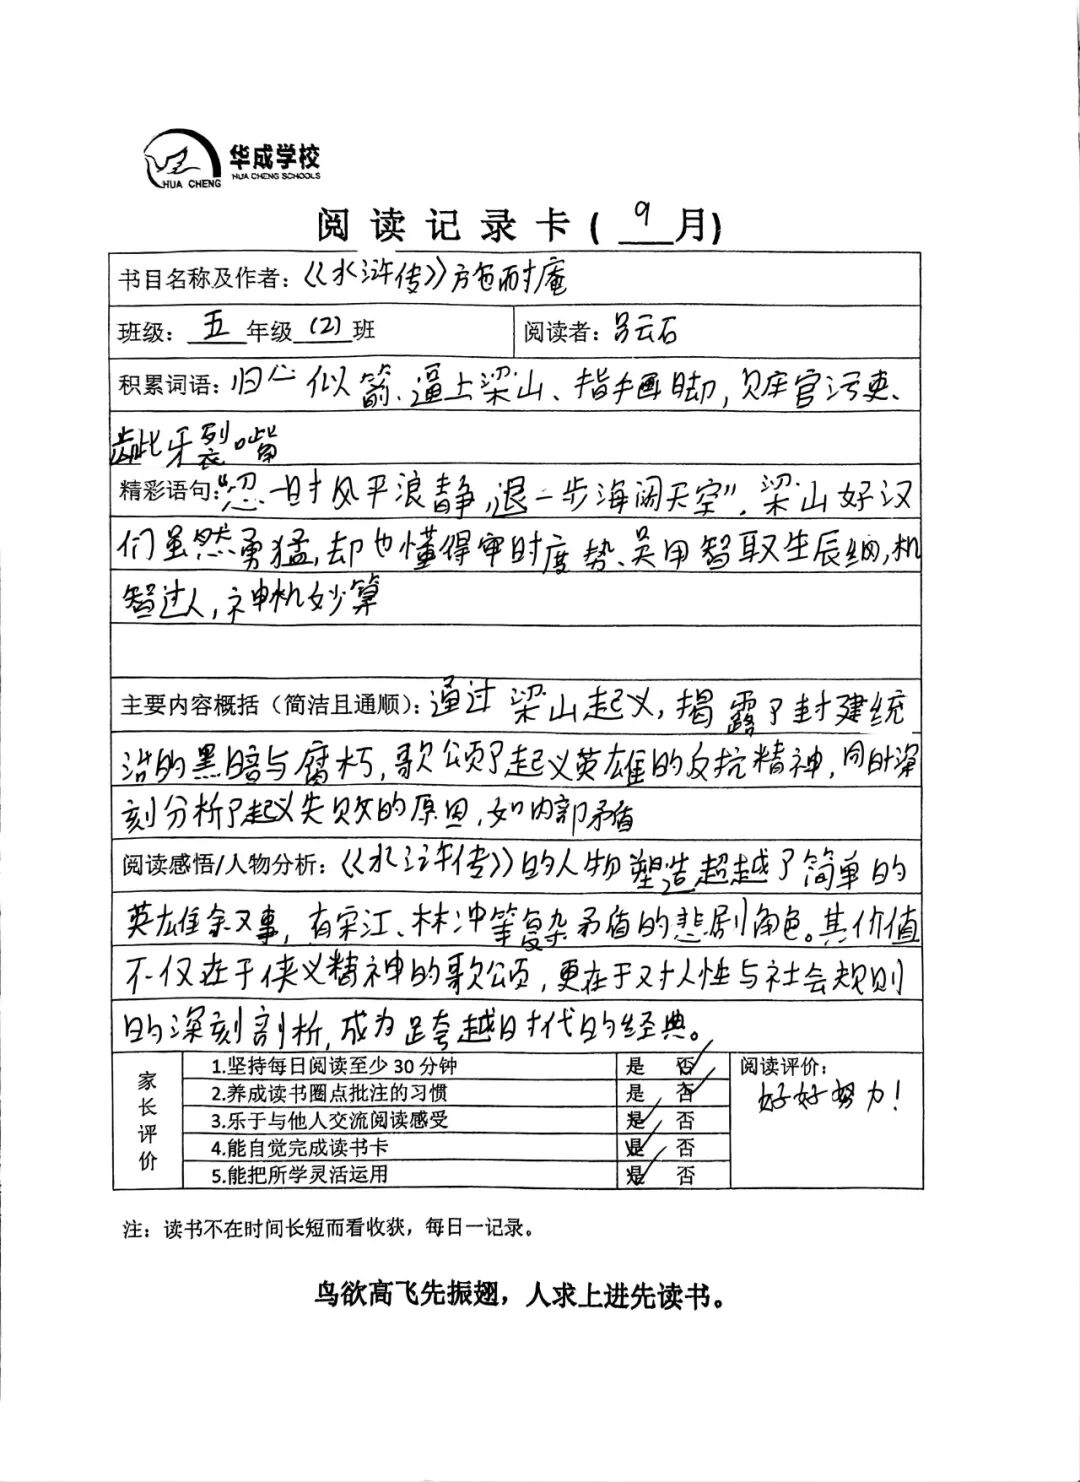 华成学校
HUA CHENG SCHOOLS
HUA CHENG
阅读记录卡(9月)
书目名称及作者:《水浒传》施耐庵
班级:五年级(2)班 阅读者:吕云石
积累词语:归心似箭、逼上梁山、指手画脚,贪官污吏、
龇牙裂嘴
精彩语句:"忍一时风平浪静,退一步海阔天空". 梁山好汉
们虽然勇猛,却也懂得审时度势、吴用智取生辰纲,机
智过人,神机妙算
主要内容概括(简洁且通顺):通过梁山起义,揭露了封建统
治的黑暗与腐朽,歌颂了起义英雄的反抗精神,同时深
刻分析了起义失败的原因,如内部矛盾
阅读感悟/人物分析:《水浒传》的人物塑造超越了简单的
英雄叙事,有宋江、林冲等复杂矛盾的悲剧角色。其价值
不仅在于侠义精神的歌颂,更在于对人性与社会规则
的深刻剖析,成为跨越时代的经典。
家长评价
1.坚持每日阅读至少30分钟 是 否✓
2.养成读书圈点批注的习惯 是 否✓
3.乐于与他人交流阅读感受 是✓ 否
4.能自觉完成读书卡 是✓ 否
5.能把所学灵活运用 是✓ 否
阅读评价:
好好努力!
注:读书不在时间长短而看收获,每日一记录。
鸟欲高飞先振翅,人求上进先读书。